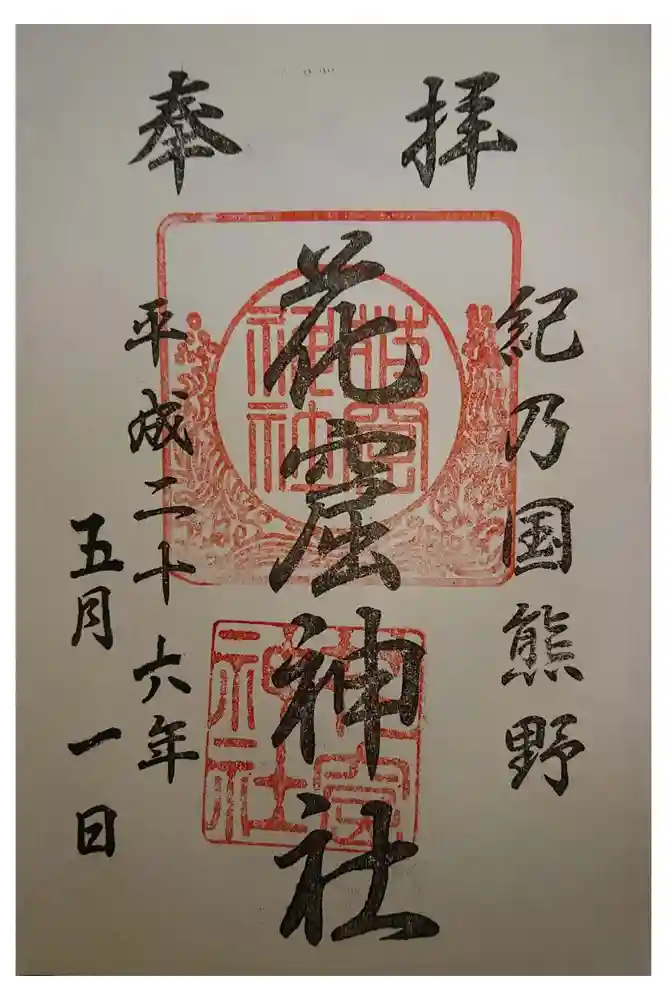 奉拝
紀乃国熊野
花窟神社
平成二十六年
五月一日
花窟
神社
花窟
神社